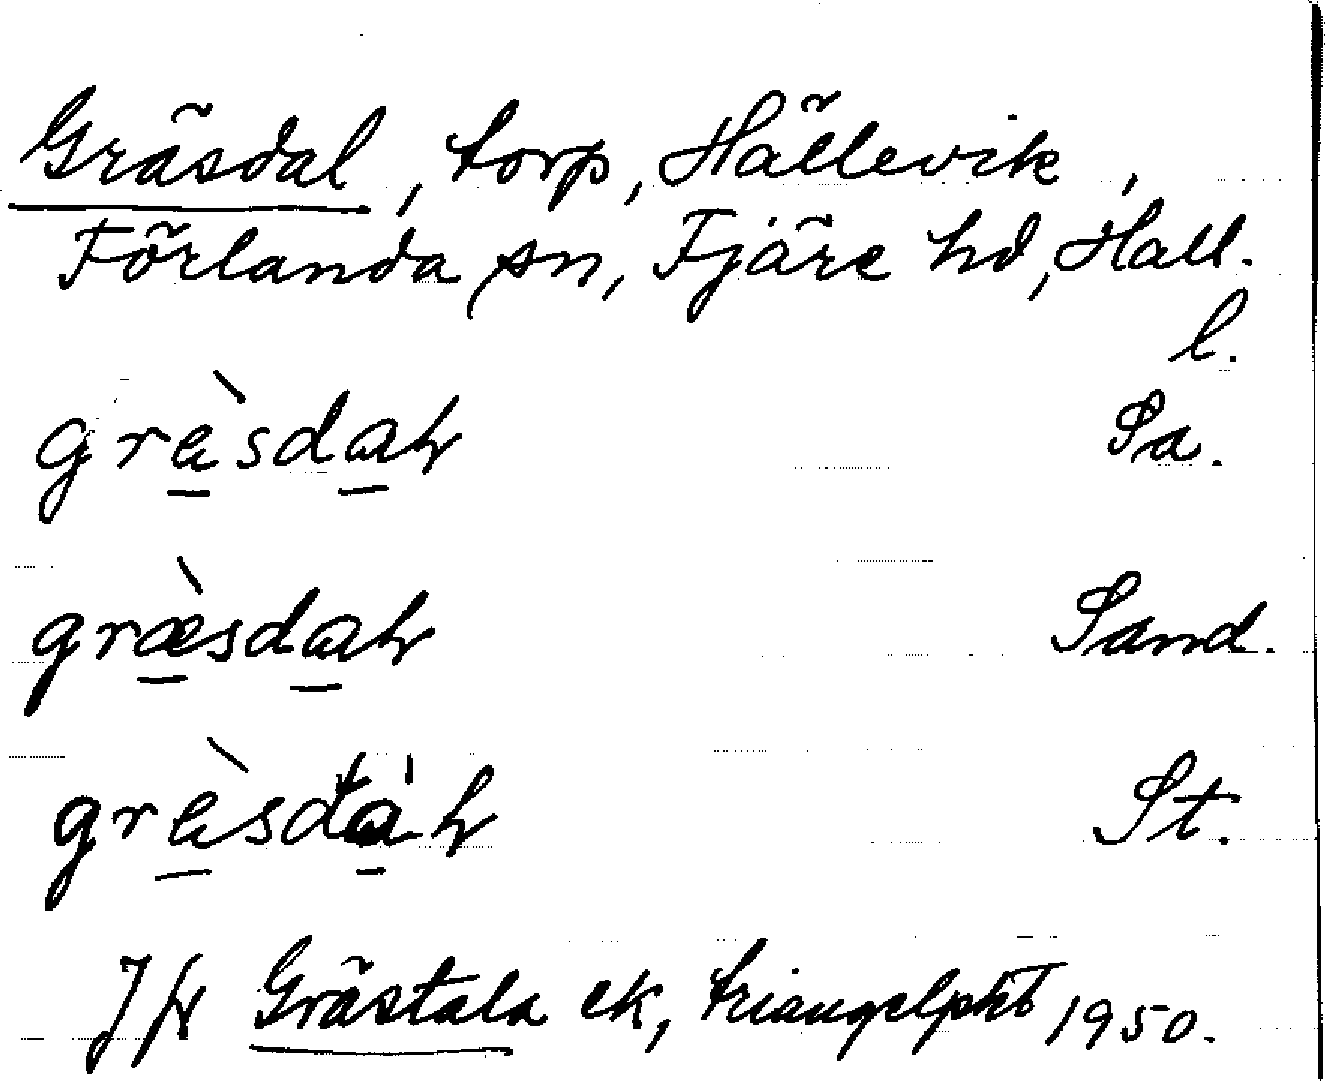 Gräsdal, torp, Hällevik,
Förlanda sn, Fjäre hd, Hall.
l.
gräsdaɫ Sa.
græsdaɫ Sand.
gräsdaɫ St.
Jfr Grästala ek, triangelpkt 1950.